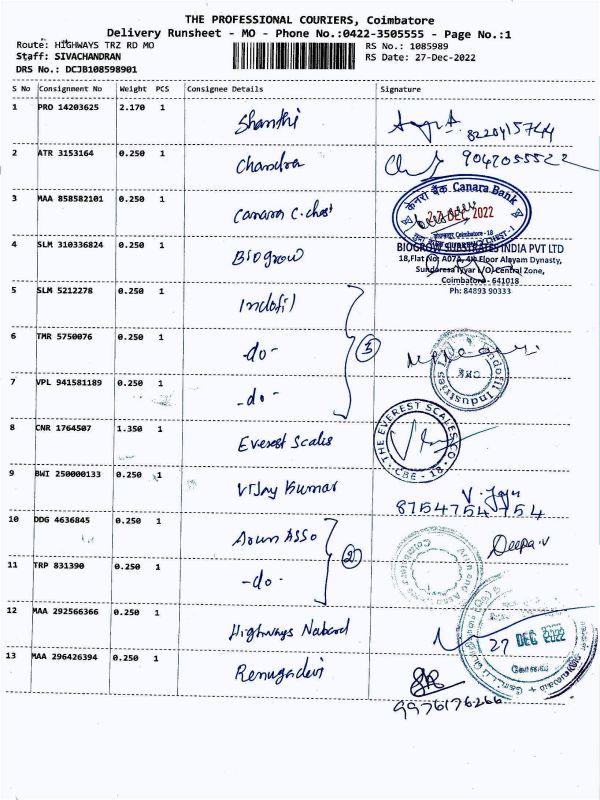 THE PROFESSIONAL COURIERS, Coimbatore
Delivery Runsheet - MO - Phone No.:0422-3505555 - Page No.:1
Route: HIGHWAYS TRZ RD MO
RS No.: 1085989
Staff: SIVACHANDRAN
RS Date: 27-Dec-2022
DRS No.: DCJB108598901
S No Consignment No Weight PCS Consignee Details Signature
1 PRO 14203625 2.170 1 Shanthi 8220415744
2 ATR 3153164 0.250 1 Chandra 9047055522
3 MAA 858582101 0.250 1 Canara C.chest
केनरा बैंक Canara Bank
27 DEC 2022
Coimbatore - 18
4 SLM 310336824 0.250 1 Biogrow
BIOGROW SUBSTRATES INDIA PVT LTD
18,Flat No: A07A, 4th Floor Alayam Dynasty,
Sundaresa Iyyar L/O, Central Zone,
Coimbatore - 641018
Ph: 84893 90333
5 SLM 5212278 0.250 1 Indofil
6 TMR 5750076 0.250 1 -do- 3
Indofil Industries
7 VPL 941581189 0.250 1 -do-
8 CNR 1764507 1.350 1 Everest Scales
THE EVEREST SCALES CO.
CBE - 18
9 BWI 250000133 0.250 1 Vijay Kumar
8754754754
10 DDG 4636845 0.250 1 Arun ASSO Deepa.v
11 TRP 831390 0.250 1 -do- 2
12 MAA 292566366 0.250 1 Highways Nabard
27 DEC 2022
13 MAA 296426394 0.250 1 Renugadevi
9976176266